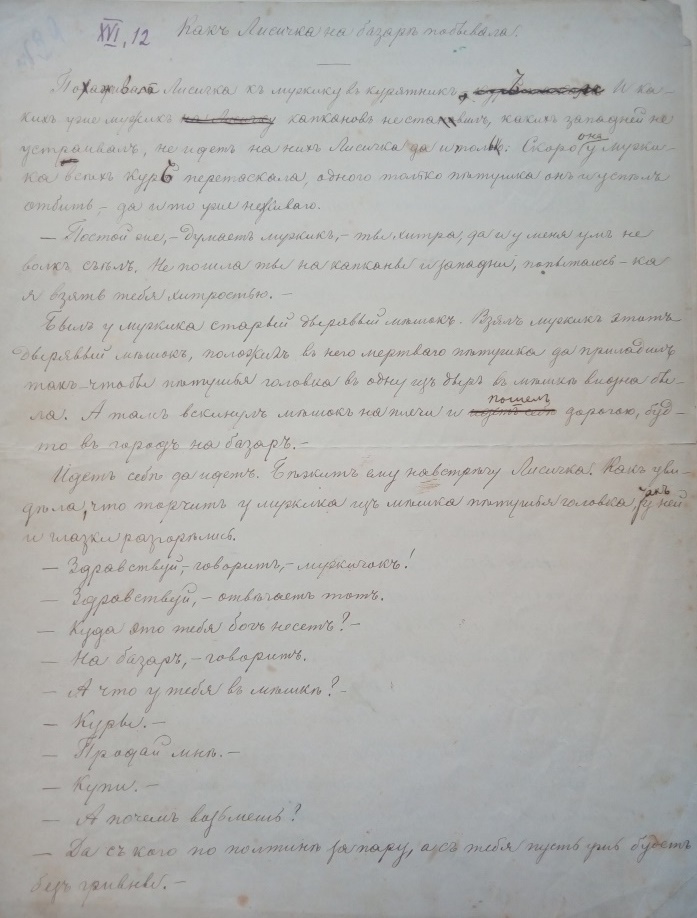 XVI, 12 Какъ Лисичка на базарѣ побывала.
Похаживала Лисичка къ мужику въ курятникъ, И ка-
кихъ уже мужикъ капкановъ не ставилъ, какихъ западней не
устраивалъ, не идетъ на нихъ Лисичка да и только. Скоро она у мужи-
ка всѣхъ куръ перетаскала, одного только пѣтушка онъ и успѣлъ
отбить – да и то уже неживаго.
— Постой же, – думаетъ мужикъ, – ты хитра, да и у меня умъ не
волкъ съѣлъ. Не пошла ты на капканы и западни, попытаюсь-ка
я взять тебя хитростью. —
Былъ у мужика старый дырявый мѣшокъ. Взялъ мужикъ этотъ
дырявый мѣшокъ, положилъ въ него мертваго пѣтушка да приладилъ
такъ – чтобы пѣтушья головка въ одну изъ дыръ въ мѣшкѣ видна бы-
ла. А тамъ вскинулъ мѣшокъ на плечи и пошелъ дорогою, буд-
то въ городъ на базаръ. —
Идетъ себѣ да идетъ. Бѣжитъ ему навстрѣчу Лисичка. Какъ уви-
дѣла, что торчитъ у мужика изъ мѣшка пѣтушья головка, у ней
и глазки разгорѣлись.
— Здравствуй, – говоритъ, – мужичокъ!
— Здравствуй, – отвѣчаетъ тотъ.
— Куда это тебя богъ несетъ? –
— На базаръ, – говоритъ.
— А что у тебя въ мѣшкѣ? –
— Куры. —
— Продай мнѣ. —
— Купи. —
— А почемъ возьмешь?
— Да съ кого по полтинѣ за пару, а съ тебя пусть ужъ будетъ
безъ гривны. —